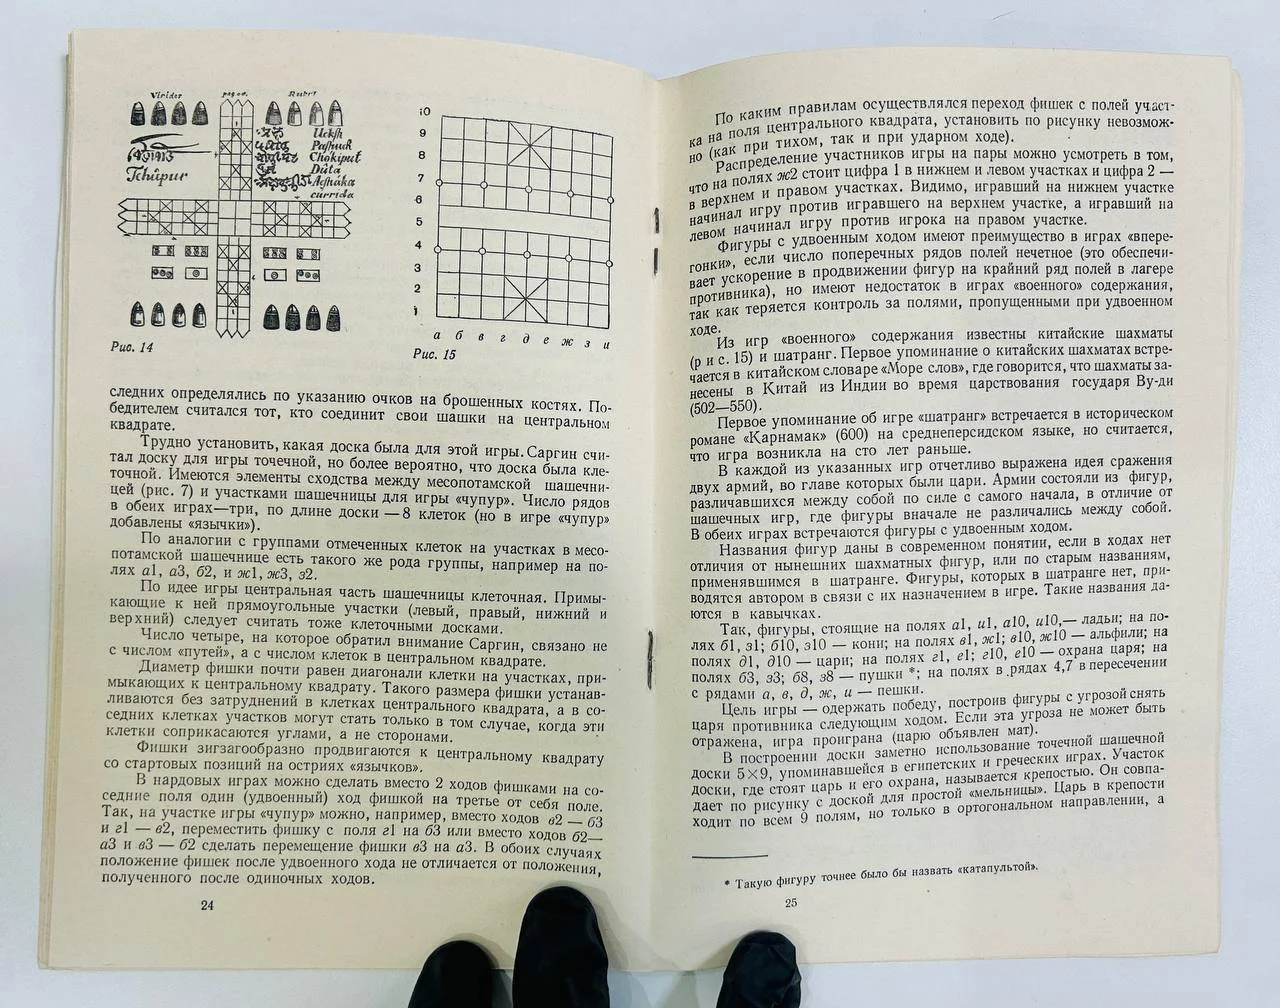 Virides
Rubri
Ucksh
Pashuk
Chokiput
Tchúpur
Dúta
Acsháka
currida
Рис. 14
10
9
8
7
6
5
4
3
2
1
а б в г д е ж з и
Рис. 15
следних определялись по указанию очков на брошенных костях. По-
бедителем считался тот, кто соединит свои шашки на центральном
квадрате.
Трудно установить, какая доска была для этой игры. Саргин счи-
тал доску для игры точечной, но более вероятно, что доска была кле-
точной. Имеются элементы сходства между месопотамской шашечни-
цей (рис. 7) и участками шашечницы для игры «чупур». Число рядов
в обеих играх—три, по длине доски — 8 клеток (но в игре «чупур»
добавлены «язычки»).
По аналогии с группами отмеченных клеток на участках в месо-
потамской шашечнице есть такого же рода группы, например на по-
лях а1, а3, б2, и ж1, ж3, з2.
По идее игры центральная часть шашечницы клеточная. Примы-
кающие к ней прямоугольные участки (левый, правый, нижний и
верхний) следует считать тоже клеточными досками.
Число четыре, на которое обратил внимание Саргин, связано не
с числом «путей», а с числом клеток в центральном квадрате.
Диаметр фишки почти равен диагонали клетки на участках, при-
мыкающих к центральному квадрату. Такого размера фишки устанав-
ливаются без затруднений в клетках центрального квадрата, а в со-
седних клетках участков могут стать только в том случае, когда эти
клетки соприкасаются углами, а не сторонами.
Фишки зигзагообразно продвигаются к центральному квадрату
со стартовых позиций на остриях «язычков».
В нардовых играх можно сделать вместо 2 ходов фишками на со-
седние поля один (удвоенный) ход фишкой на третье от себя поле.
Так, на участке игры «чупур» можно, например, вместо ходов в2 — б3
и г1 — в2, переместить фишку с поля г1 на б3 или вместо ходов б2—
а3 и в3 — б2 сделать перемещение фишки в3 на а3. В обоих случаях
положение фишек после удвоенного хода не отличается от положения,
полученного после одиночных ходов.
24
По каким правилам осуществлялся переход фишек с полей участ-
ка на поля центрального квадрата, установить по рисунку невозмож-
но (как при тихом, так и при ударном ходе).
Распределение участников игры на пары можно усмотреть в том,
что на полях ж2 стоит цифра 1 в нижнем и левом участках и цифра 2 —
в верхнем и правом участках. Видимо, игравший на нижнем участке
начинал игру против игравшего на верхнем участке, а игравший на
левом начинал игру против игрока на правом участке.
Фигуры с удвоенным ходом имеют преимущество в играх «впере-
гонки», если число поперечных рядов полей нечетное (это обеспечи-
вает ускорение в продвижении фигур на крайний ряд полей в лагере
противника), но имеют недостаток в играх «военного» содержания,
так как теряется контроль за полями, пропущенными при удвоенном
ходе.
Из игр «военного» содержания известны китайские шахматы
(рис. 15) и шатранг. Первое упоминание о китайских шахматах встре-
чается в китайском словаре «Море слов», где говорится, что шахматы за-
несены в Китай из Индии во время царствования государя Ву-ди
(502—550).
Первое упоминание об игре «шатранг» встречается в историческом
романе «Карнамак» (600) на среднеперсидском языке, но считается,
что игра возникла на сто лет раньше.
В каждой из указанных игр отчетливо выражена идея сражения
двух армий, во главе которых были цари. Армии состояли из фигур,
различавшихся между собой по силе с самого начала, в отличие от
шашечных игр, где фигуры вначале не различались между собой.
В обеих играх встречаются фигуры с удвоенным ходом.
Названия фигур даны в современном понятии, если в ходах нет
отличия от нынешних шахматных фигур, или по старым названиям,
применявшимся в шатранге. Фигуры, которых в шатранге нет, при-
водятся автором в связи с их назначением в игре. Такие названия да-
ются в кавычках.
Так, фигуры, стоящие на полях а1, и1, а10, и10,— ладьи; на по-
лях б1, з1; б10, з10 — кони; на полях в1, ж1; в10, ж10 — альфили; на
полях д1, д10 — цари; на полях г1, е1; г10, е10 — охрана царя; на
полях б3, з3; б8, з8 — пушки *; на полях в рядах 4,7 в пересечении
с рядами а, в, д, ж, и — пешки.
Цель игры — одержать победу, построив фигуры с угрозой снять
царя противника следующим ходом. Если эта угроза не может быть
отражена, игра проиграна (царю объявлен мат).
В построении доски заметно использование точечной шашечной
доски 5×9, упоминавшейся в египетских и греческих играх. Участок
доски, где стоят царь и его охрана, называется крепостью. Он совпа-
дает по рисунку с доской для простой «мельницы». Царь в крепости
ходит по всем 9 полям, но только в ортогональном направлении, а
* Такую фигуру точнее было бы назвать «катапультой».
25